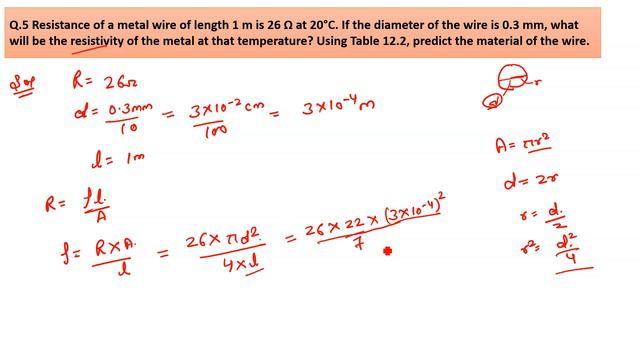 Q.5 Resistance of a metal wire of length 1 m is 26 Ω at 20°C. If the diameter of the wire is 0.3 mm, what
will be the resistivity of the metal at that temperature? Using Table 12.2, predict the material of the wire.
Sol R = 26Ω
d = 0.3mm/10 = 3×10⁻²cm/100 = 3×10⁻⁴m
l = 1m
R = ρl/A
ρ = R×A/l = 26×πd²/4×l = 26×22×(3×10⁻⁴)²/7
r
d
A = πr²
d = 2r
r = d/2
r² = d²/4